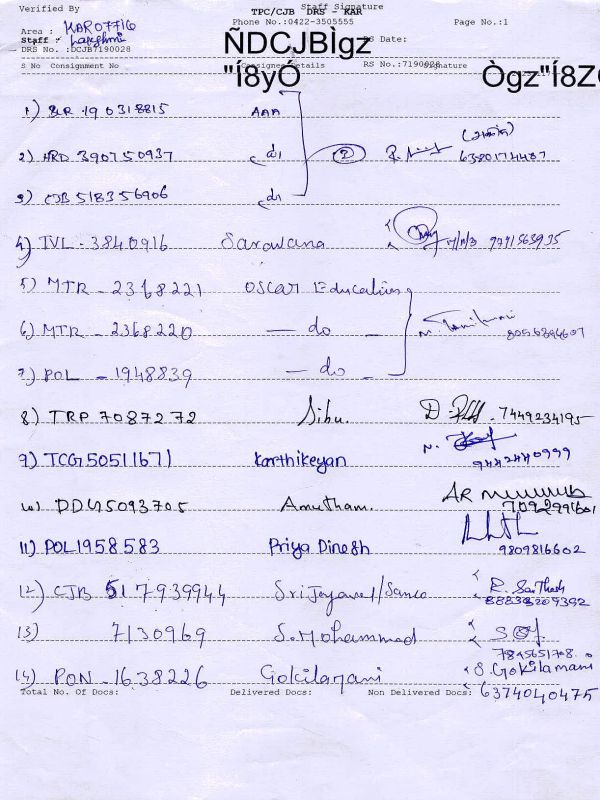 Verified By Staff Signature
TPC/CJB DRS - KAR
Phone No.:0422-3505555 Page No.:1
Area : KAROFFIG
Staff :
DRS No. :DCJB7190028 DRS Date:
ÑDCJBÌgz
S No Consignment No Consignee Details DRS No.:7190028 Signature
"Í8yÓ Ògz"Í8ZÓ
1) BLR 190318815 AAA
2) HRD 390750937 do 2 6380174487
3) CJB 518356906 do
4) TVL - 3840916 Saravana 9791563935
5) MTR - 2368221 Oscar Education
6) MTR - 2368220 — do — 8056894607
7) POL - 1948839 — do
8) TRP 7087272 Sibu. 7449234195
9) TCG50511671 Karthikeyan 9442440999
10) DDG5093705 Amutham. 7092991601
11) POL1958583 Priya Dinesh 9809816602
12) CJB 517939944 Sri Jeyavel/Sanco R. Santhosh
13) 7130969 S. Mohammed 7845651708
14) PON - 1638226 Gokilamani S. Gokilamani
Total No. Of Docs: Delivered Docs: Non Delivered Docs: 6374040475